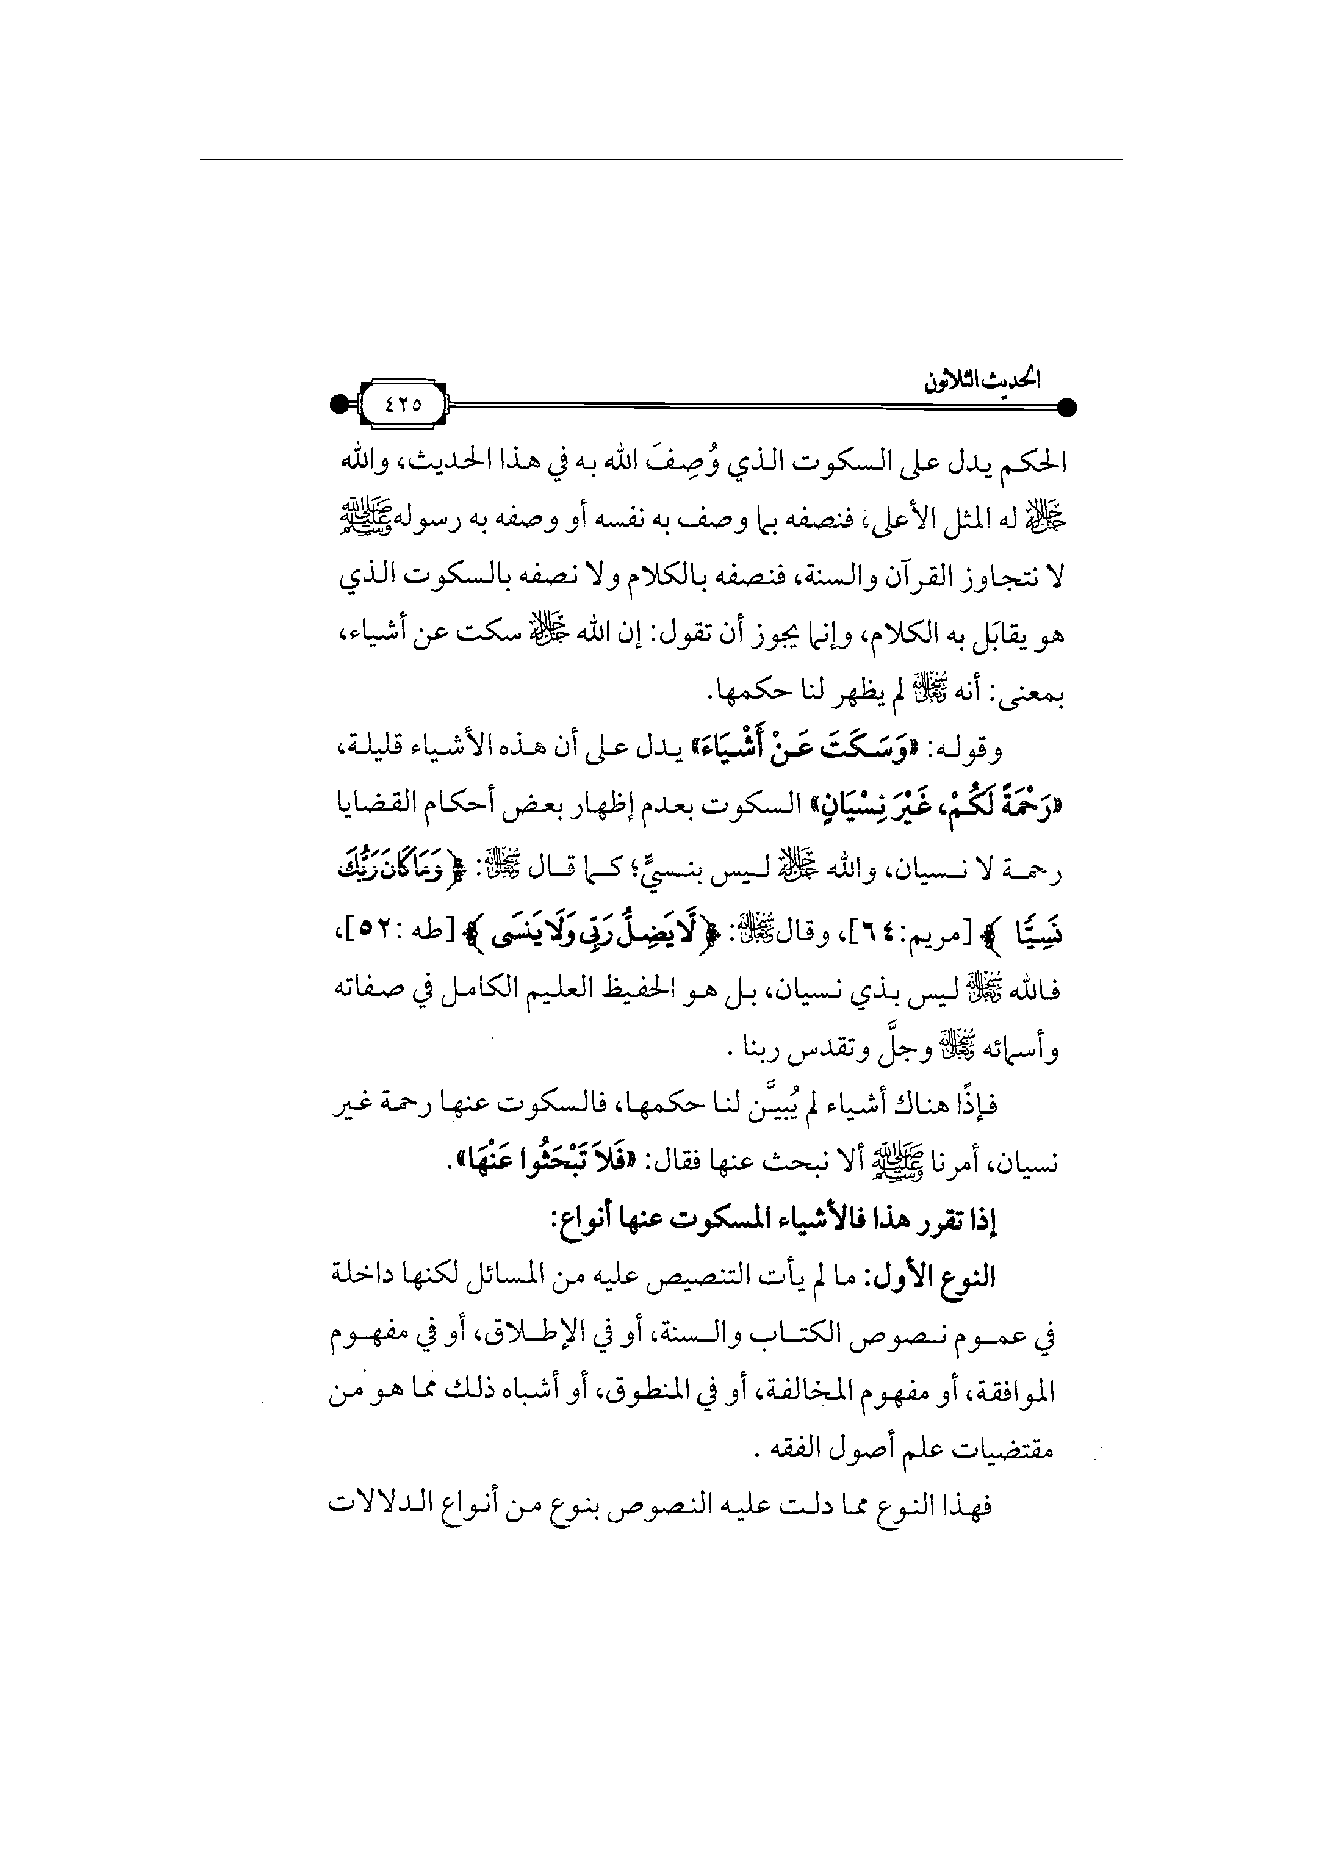 الحديث الثلاثون
٤٢٥
الحكم يدل على السكوت الذي وُصِفَ الله به في هذا الحديث، والله
ﷻ له المثل الأعلى، فنصفه بما وصف به نفسه أو وصفه به رسوله ﷺ
لا نتجاوز القرآن والسنة، فنصفه بالكلام ولا نصفه بالسكوت الذي
هو يقابَل به الكلام، وإنما يجوز أن تقول: إن الله ﷻ سكت عن أشياء،
بمعنى: أنه لم يظهر لنا حكمها.
وقوله: «وَسَكَتَ عَنْ أَشْيَاءَ» يدل على أن هذه الأشياء قليلة،
«رَحْمَةً لَكُمْ، غَيْرَ نِسْيَانٍ» السكوت بعدم إظهار بعض أحكام القضايا
رحمة لا نسيان، والله ﷻ ليس بنسيٍّ؛ كما قال : ﴿ وَمَا كَانَ رَبُّكَ
نَسِيًّا ﴾ [مريم:٦٤]، وقال : ﴿ لَّا يَضِلُّ رَبِّي وَلَا يَنسَى ﴾ [طه :٥٢]،
فالله ليس بذي نسيان، بل هو الحفيظ العليم الكامل في صفاته
وأسمائه وجلَّ وتقدس ربنا .
فإذًا هناك أشياء لم يُبيَّن لنا حكمها، فالسكوت عنها رحمة غير
نسيان، أمرنا ﷺ ألا نبحث عنها فقال: «فَلاَ تَبْحَثُوا عَنْهَا».
إذا تقرر هذا فالأشياء المسكوت عنها أنواع:
النوع الأول: ما لم يأت التنصيص عليه من المسائل لكنها داخلة
في عموم نصوص الكتاب والسنة، أو في الإطلاق، أو في مفهوم
الموافقة، أو مفهوم المخالفة، أو في المنطوق، أو أشباه ذلك مما هو من
مقتضيات علم أصول الفقه .
فهذا النوع مما دلت عليه النصوص بنوع من أنواع الدلالات